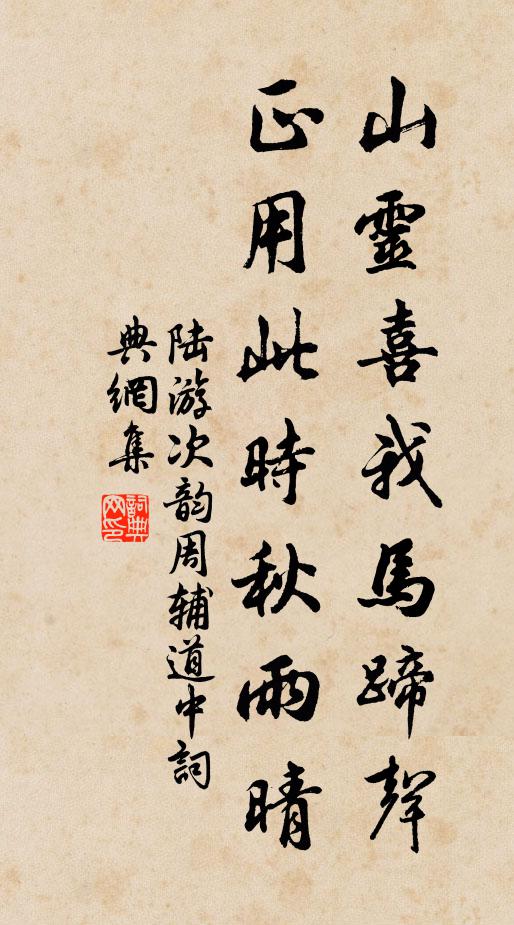 山靈喜我馬蹄聲
正用此時秋雨晴
陆游次韵周辅道中詞
典網集
詞典
网印